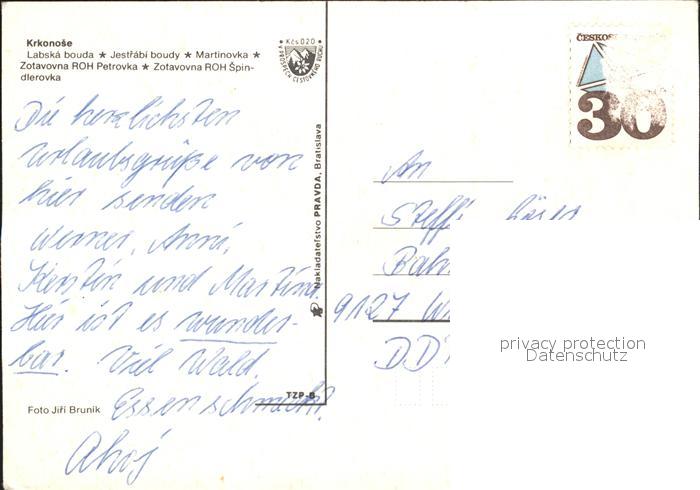 Krkonoše
Labská bouda ★ Jestřábí boudy ★ Martinovka ★
Zotavovna ROH Petrovka ★ Zotavovna ROH Špin-
dlerovka
Kčs 0.20
V PROSPĚCH CESTOVNÍHO RUCHU
Die herzlichsten
Urlaubsgrüße von
hier senden
Werner, Anni,
Kerstin und Martina.
Hier ist es wunder-
bar. Viel Wald.
Essen schmeckt.
Ahoj
Foto Jiří Bruník
Nakladateľstvo PRAVDA, Bratislava
TZP-B
ČESKOS
30
An
Steffi
Bah
9127 W
DD
privacy protection
Datenschutz